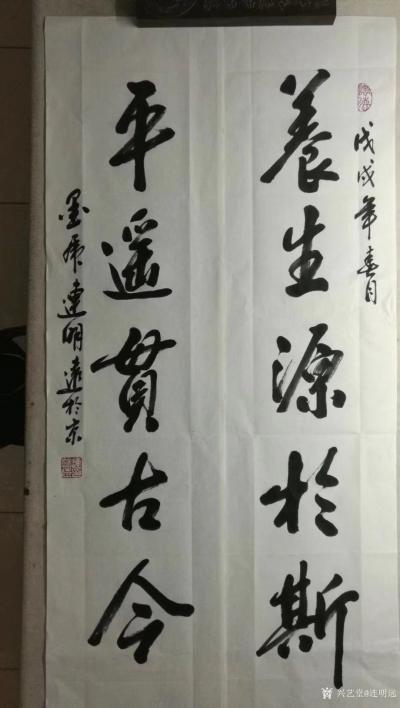 戊戌年春月
養生源於斯
平遥貫古今
墨痴連明遠於京
兴艺堂@连明远